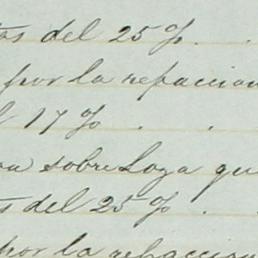 os del 25%. .
por la refaccion
l 17%. . .
ra sobre Loza qu
s del 25%. .
por la refaccion